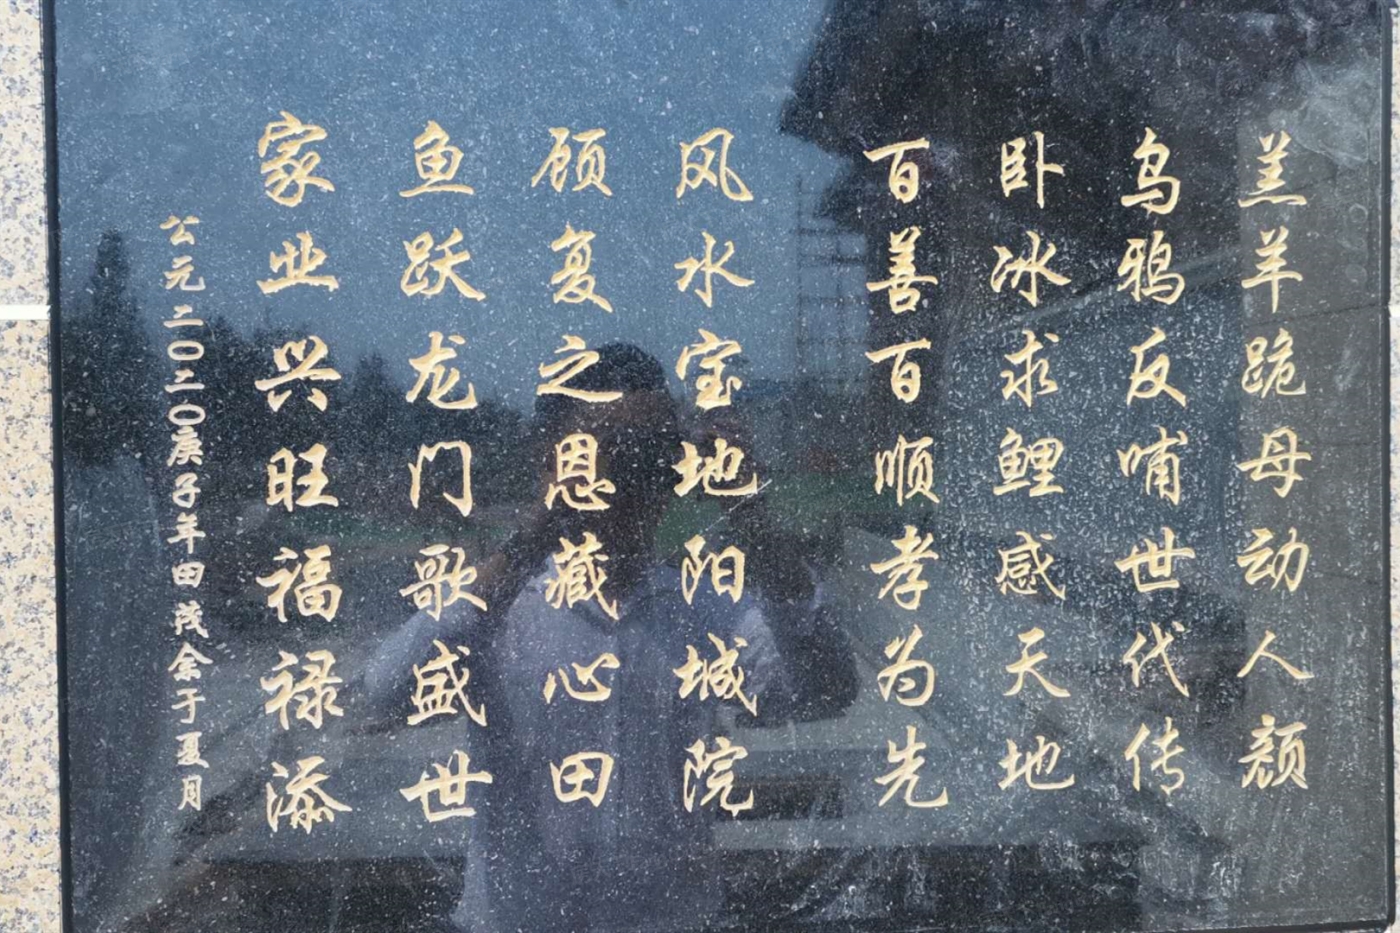 羔羊跪母动人颜
乌鸦反哺世代传
卧冰求鲤感天地
百善百顺孝为先
风水宝地阳城院
顾复之恩藏心田
鱼跃龙门歌盛世
家业兴旺福禄添
公元二〇二〇庚子年田茂余于夏月